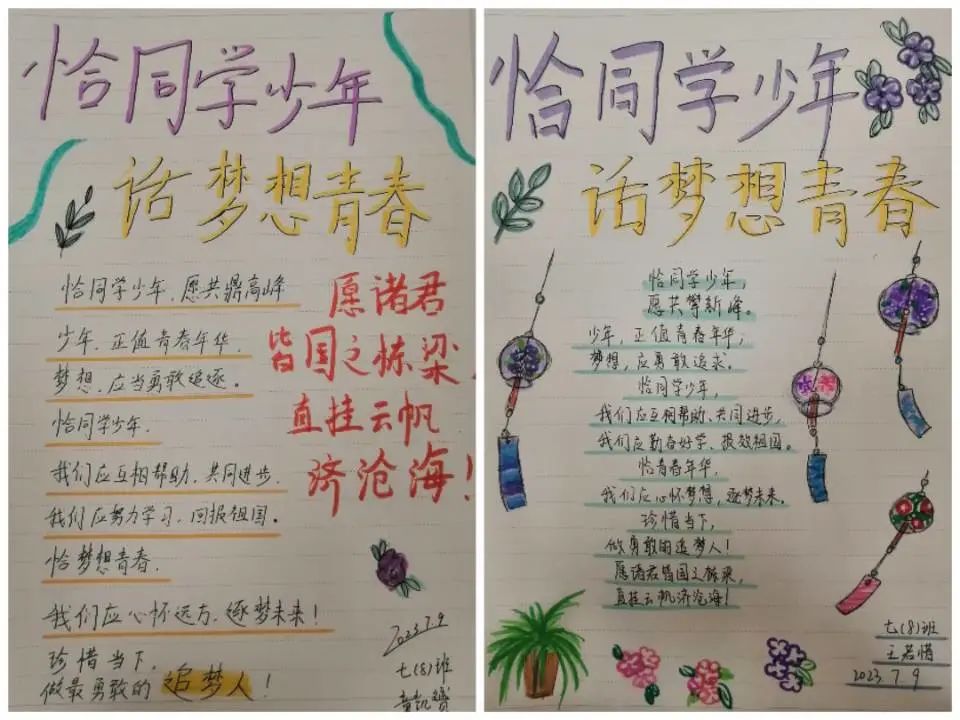 恰同学少年
话梦想青春
恰同学少年，愿共鼎高峰
少年，正值青春年华，
梦想，应当勇敢追逐。
恰同学少年，
我们应互相帮助，共同进步，
我们应努力学习，回报祖国。
恰梦想青春，
我们应心怀远方，逐梦未来！
珍惜当下，
做最勇敢的追梦人！
愿诸君
皆国之栋梁，
直挂云帆
济沧海！
2023.7.9
七(8)班
恰同学少年
话梦想青春
恰同学少年，
愿共攀新峰。
少年，正值青春年华，
梦想，应勇敢追求。
恰同学少年，
我们应互相帮助、共同进步，
我们应勤奋好学、报效祖国。
恰青春年华，
我们应心怀梦想，逐梦未来。
珍惜当下，
做勇敢的追梦人！
愿诸君皆国之栋梁，
直挂云帆济沧海！
七(8)班
王若惜
2023.7.9